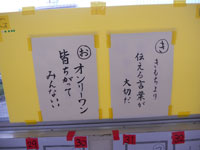 き
きもちより
伝える言葉が
大切だ
お
オンリーワン
皆ちがって
みんないい